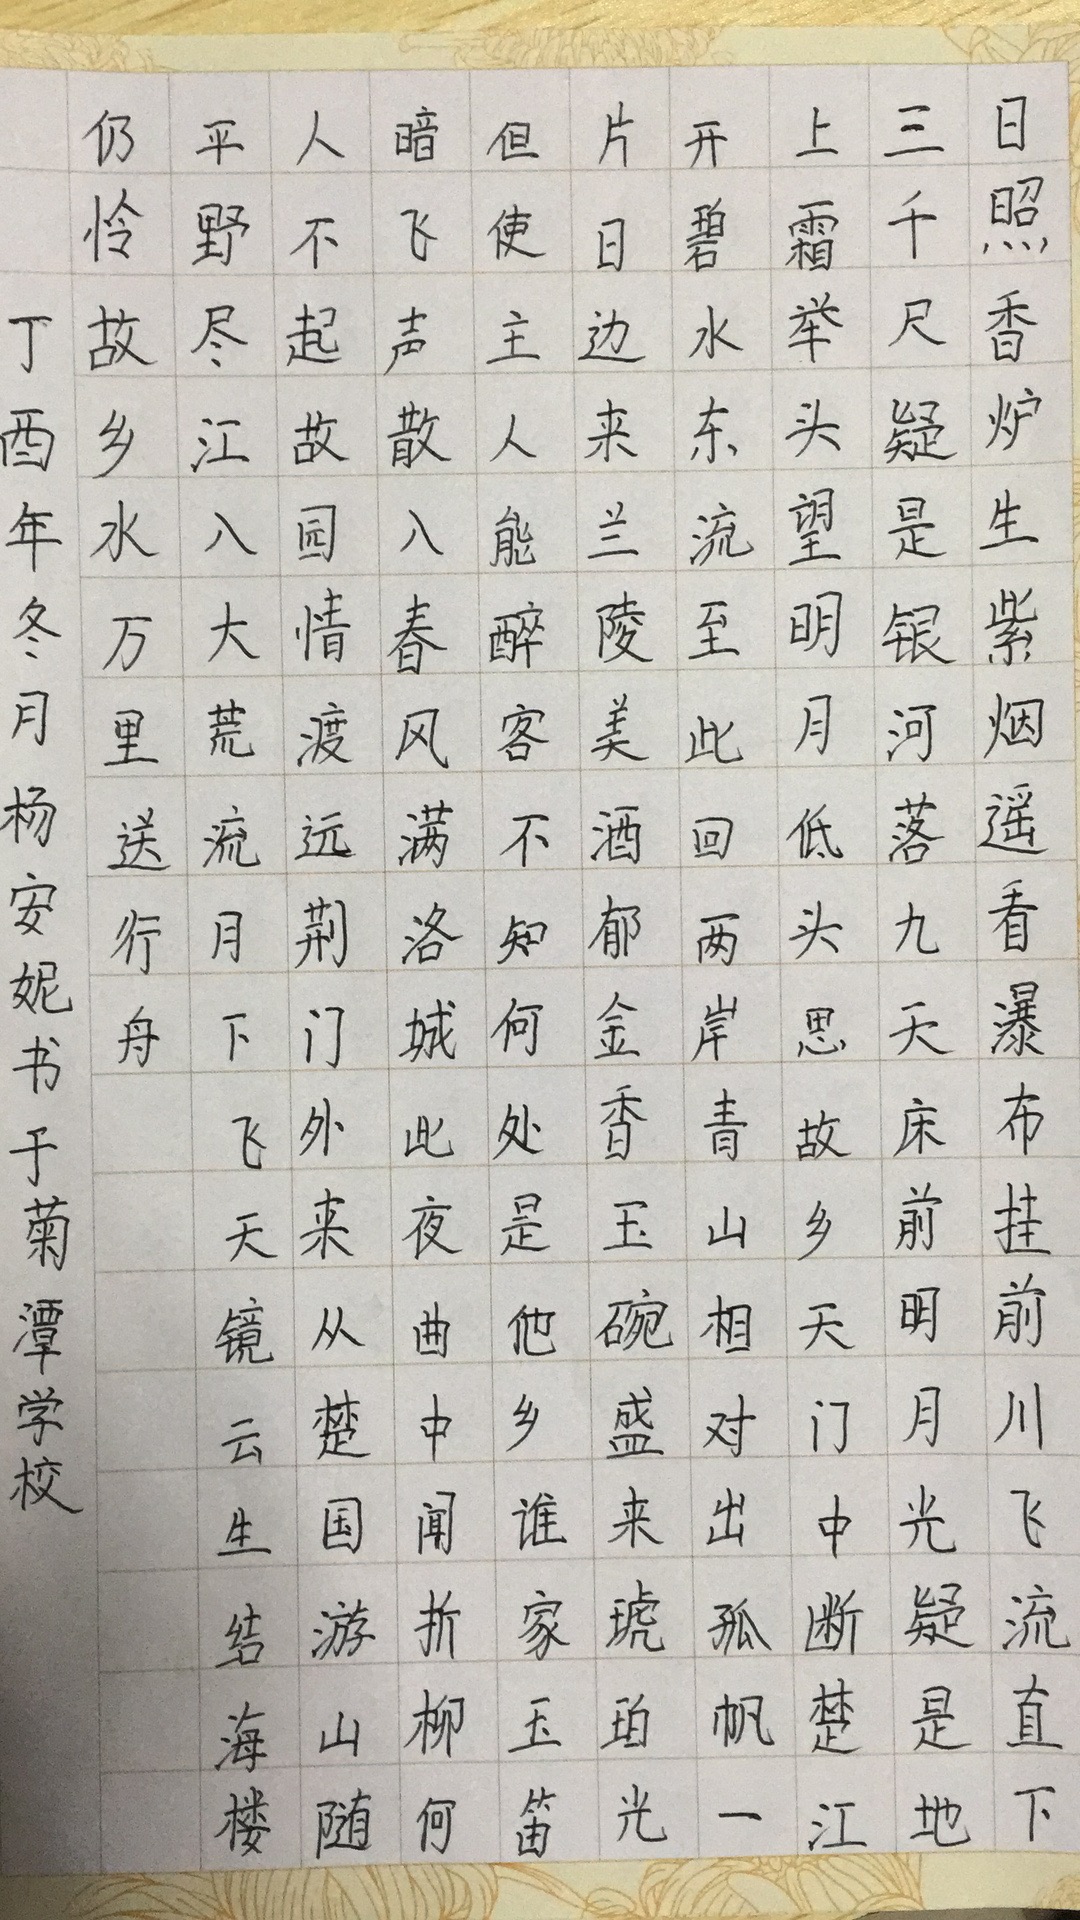 日照香炉生紫烟遥看瀑布挂前川飞流直下
三千尺疑是银河落九天床前明月光疑是地
上霜举头望明月低头思故乡天门中断楚江
开碧水东流至此回两岸青山相对出孤帆一
片日边来兰陵美酒郁金香玉碗盛来琥珀光
但使主人能醉客不知何处是他乡谁家玉笛
暗飞声散入春风满洛城此夜曲中闻折柳何
人不起故园情渡远荆门外来从楚国游山随
平野尽江入大荒流月下飞天镜云生结海楼
仍怜故乡水万里送行舟
丁酉年冬月杨安妮书于菊潭学校